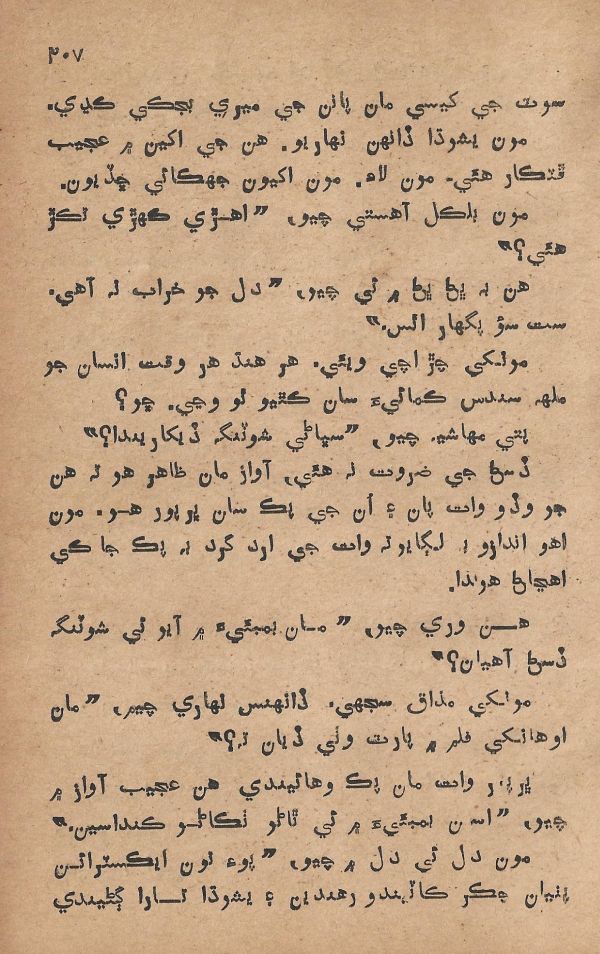 ٣٠٧
سوٽ جي کيسي مان پائن جي ميري بجڪي ڪڍي.
مون يشوڌا ڏانهن نهاريو. هن جي اکين ۾ عجيب
ڦٽڪار هئي۔ مون لاءِ. مون اکيون جهڪائي ڇڏيون.
مون بلڪل آهستي چيو، ”اهڙي ڪهڙي تڪڙ
هئي؟“
هن به ڀڻ ڀڻ ۾ ئي چيو، ”دل جو خراب نه آهي.
ست سؤ پگهار اٿس.“
مونکي چڙ اچي ويئي. هر هنڌ هر وقت انسان جو
ملهه سندس ڪمائيءَ سان ڪٿيو ٿو وڃي. ڇو؟
پتي مهاشيہ چيو، ”سڀاڻي شوٽنگ ڏيکاريندا؟“
ڏسڻ جي ضروت نه هئي، آواز مان ظاهر هو ته هن
جو وڏو وات پان ۽ اُن جي پڪ سان ڀرپور هو. مون
اهو اندازو به لڳايو ته وات جي ارد گرد به پڪ جا ڪي
اهڃاڻ هوندا.
هن وري چيو، ”مان بمبئيءَ ۾ آيو ئي شوٽنگ
ڏسڻ آهيان؟“
مونکي مذاق سجهي. ڏانهنس نهاري چيم، ”مان
اوهانکي فلم ۾ پارٽ وٺي ڏيان ته؟“
ڀرپور وات مان پڪ وهائيندي هن عجيب آواز ۾
چيو، ”اسان بمبئيءَ ۾ ئي ٿاڻو ٺڪاڻو ڪنداسين.“
مون دل ئي دل ۾ چيو، ”پوءِ تون ايڪسٽرائن
پٺيان چڪر کائيندو رهندين ۽ يشوڌا تارا ڳڻيندي